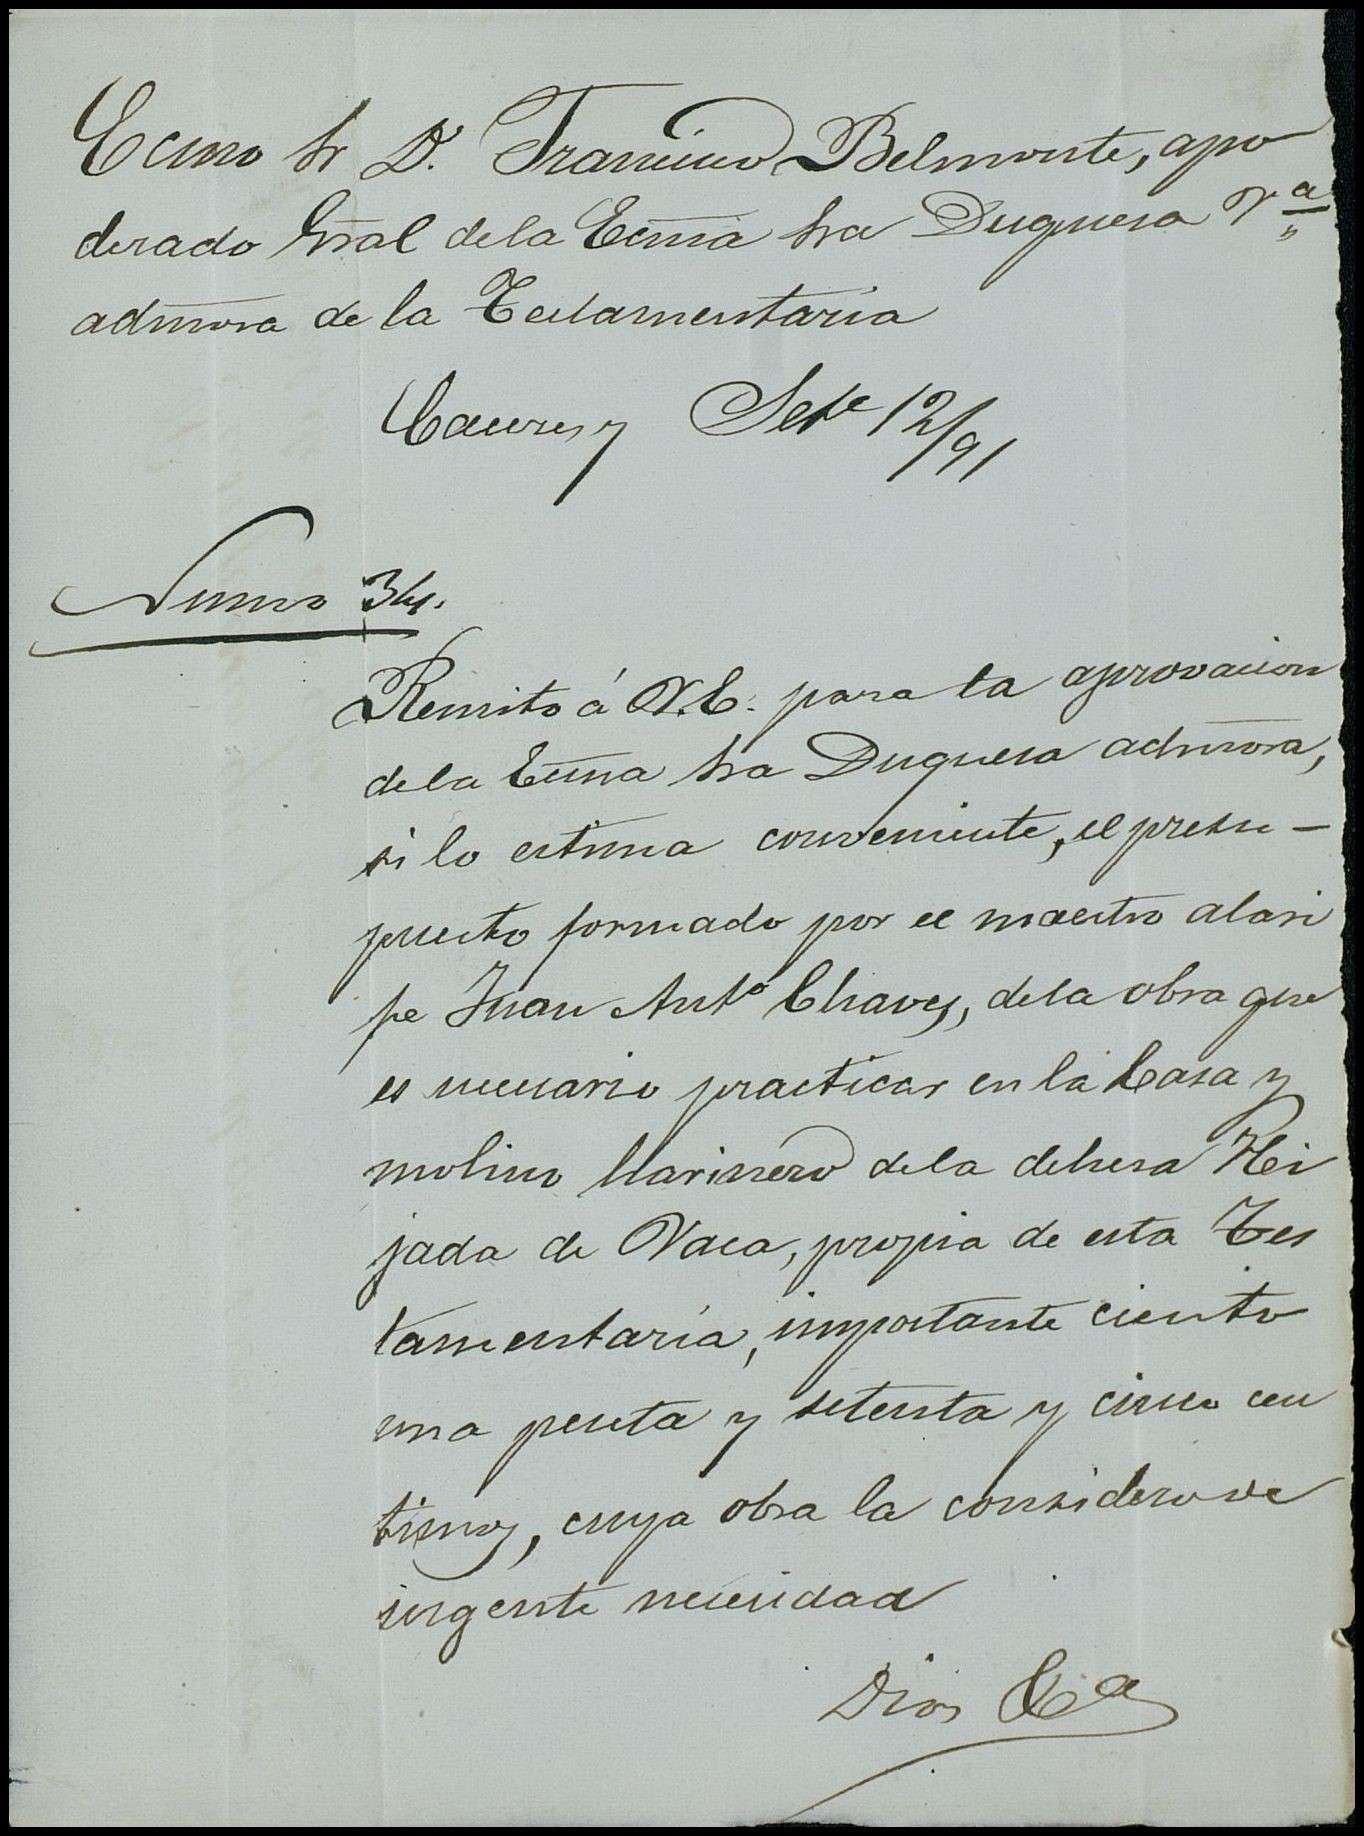 Ecmo Sr D. Francisco Belmonte, apo
derado Gral de la Ecma Sra Duquesa Vª
admora de la Testamentaria
Caceres y Sete 12/91
Numro 34.
Remito á V.E. para la aprovacion
de la Ecma Sra Duquesa admora,
si lo estima conveniente, el presu-
puesto formado por el maestro alari
fe Juan Antº Chaves, de la obra que
es necesario practicar en la Casa y
molino harinero de la dehesa Hi
jada de Vaca, propia de esta Tes
tamentaría, importante ciento
una peseta y setenta y cinco cen
timos, cuya obra la considero de
urgente necesidad
Dios &ª